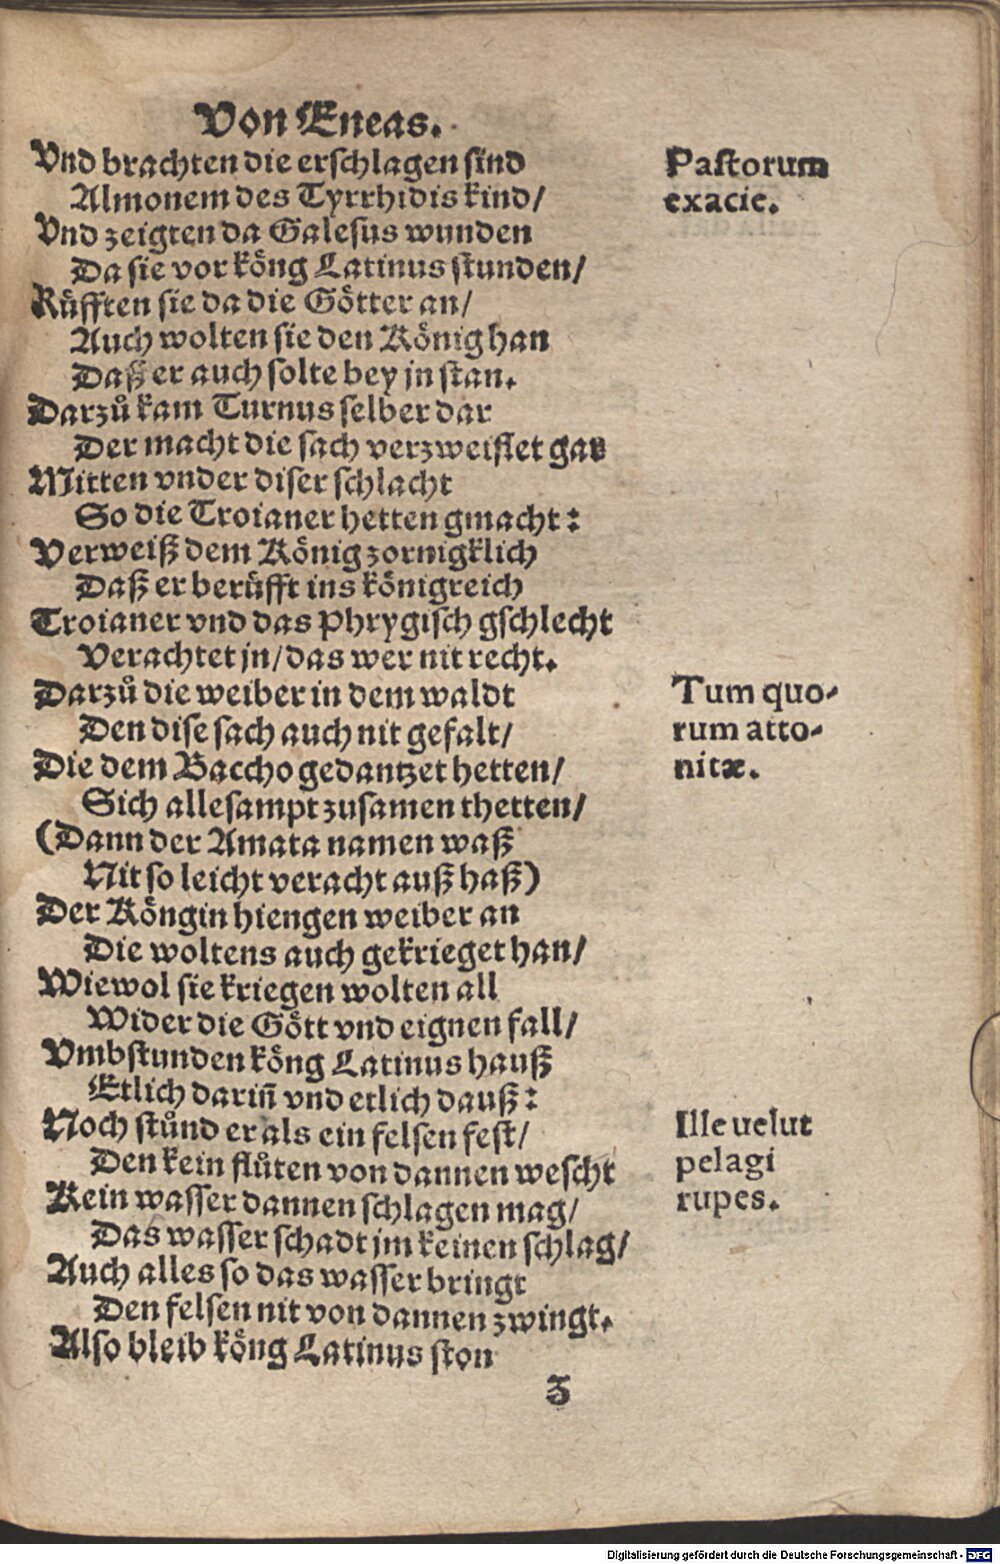 Von Eneas.
Vnd brachten die erschlagen sind
Almonem des Tyrrhidis kind/
Vnd zeigten da Galesus wunden
Da sie vor köng Latinus stunden/
Rüfften sie da die Götter an/
Auch wolten sie den König han
Daß er auch solte bey jn stan.
Darzů kam Turnus selber dar
Der macht die sach verzweiflet gar
Mitten vnder diser schlacht
So die Troianer hetten gmacht:
Verweiß dem König zornigklich
Daß er berüfft ins königreich
Troianer vnd das Phrygisch gschlecht
Verachtet jn/das wer nit recht.
Darzů die weiber in dem waldt
Den dise sach auch nit gefalt/
Die dem Baccho gedantzet hetten/
Sich allesampt zusamen thetten/
(Dann der Amata namen waß
Nit so leicht veracht auß haß)
Der Köngin hiengen weiber an
Die woltens auch gekrieget han/
Wiewol sie kriegen wolten all
Wider die Gött vnd eignen fall/
Vmbstunden köng Latinus hauß
Etlich dariñ vnd etlich dauß:
Noch stůnd er als ein felsen fest/
Den kein flůten von dannen wescht
Kein wasser dannen schlagen mag/
Das wasser schadt jm keinen schlag/
Auch alles so das wasser bringt
Den felsen nit von dannen zwingt.
Also bleib köng Latinus ston
Z
Pastorum
exacie.
Tum quo-
rum atto-
nitæ.
Ille uelut
pelagi
rupes.
Digitalisierung gefördert durch die Deutsche Forschungsgemeinschaft - DFG